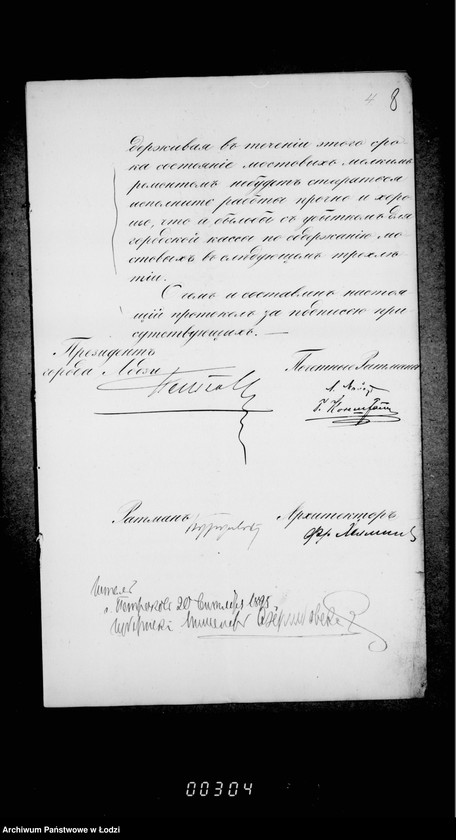 4 8
держивая въ теченіи этого сро-
ка состояніе мостовыхъ мелкимъ
ремонтомъ небудетъ стараться
исполнить работы прочно и хоро-
шо, что и было бы съ убыткомъ для
городской кассы по содержанію мо-
стовыхъ въ слѣдующемъ трехлѣ-
тіи.
О чемъ и составленъ настоя-
щій протоколъ за подписью при-
сутствующихъ. —
Президентъ
города Лодзи
Почетные Ратманы
Ратманъ
Архитекторъ
Читалъ
г. Петроковъ 20 Сентября 1895
Губернскій
00304
Archiwum Państwowe w Łodzi